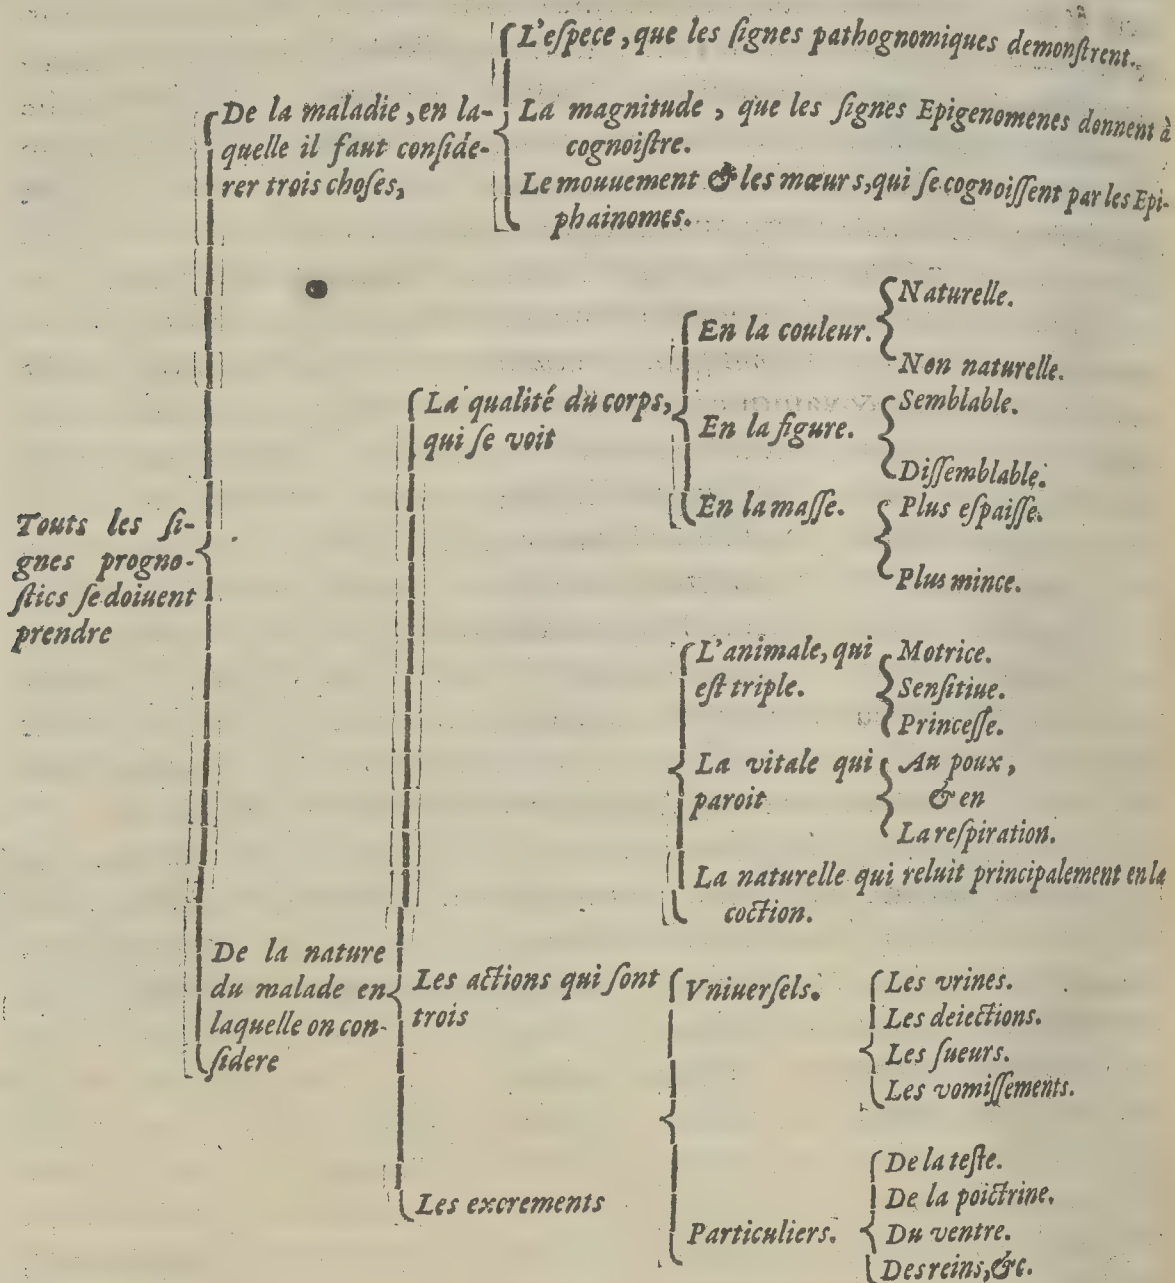 Touts les ſi-
gnes progno-
ſtics ſe doiuent
prendre
De la maladie, en la-
quelle il faut conſide-
rer trois choſes,
L'eſpece, que les ſignes pathognomiques demonſtrent.
La magnitude, que les ſignes Epigenomenes donnent à
cognoiſtre.
Le mouuement & les mœurs, qui ſe cognoiſſent par les Epi-
phainomes.
De la nature
du malade en
laquelle on con-
ſidere
La qualité du corps,
qui ſe voit
En la couleur.
Naturelle.
Non naturelle.
En la figure.
Semblable.
Diſſemblable.
En la maſſe.
Plus eſpaiſſe.
Plus mince.
Les actions qui ſont
trois
L'animale, qui
eſt triple.
Motrice.
Senſitiue.
Princeſſe.
La vitale qui
paroit
Au poux,
& en
La reſpiration.
La naturelle qui reluit principalement en la
coction.
Les excrements
Vniuerſels.
Les vrines.
Les deiections.
Les ſueurs.
Les vomiſſements.
Particuliers.
De la teſte.
De la poictrine.
Du ventre.
Des reins, &c.